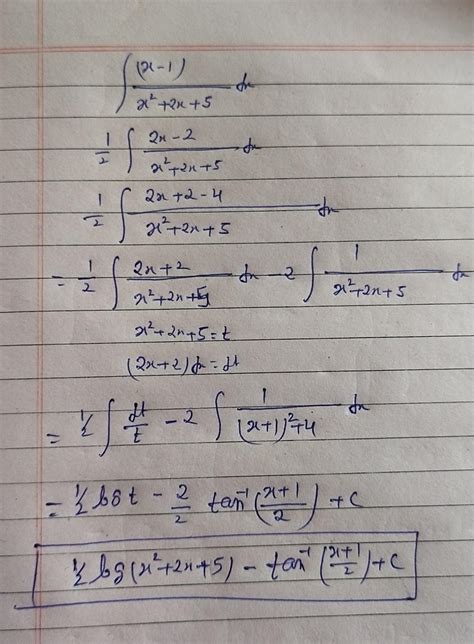 ∫ (x-1)/(x²+2x+5) dx
1/2 ∫ (2x-2)/(x²+2x+5) dx
1/2 ∫ (2x+2-4)/(x²+2x+5) dx
= 1/2 ∫ (2x+2)/(x²+2x+5) dx - 2 ∫ 1/(x²+2x+5) dx
x²+2x+5=t
(2x+2)dx=dt
= 1/2 ∫ dt/t - 2 ∫ 1/((x+1)²+4) dx
= 1/2 log t - 2/2 tan⁻¹((x+1)/2) + c
1/2 log(x²+2x+5) - tan⁻¹((x+1)/2) + c